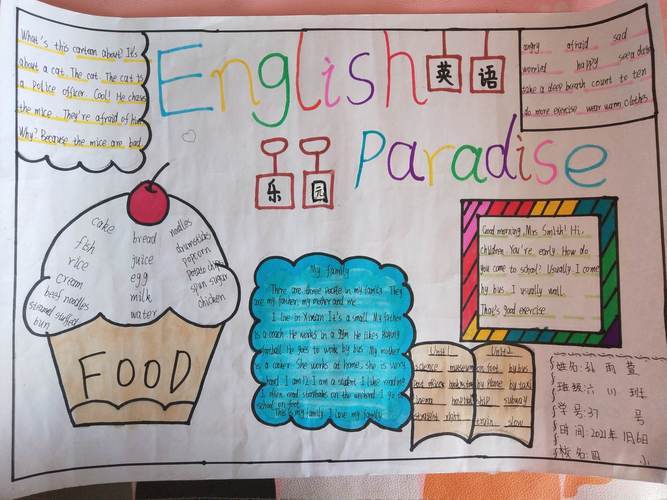 English
英语
乐园
Paradise
What's this cartoon about? It's
about a cat. The cat. The cat is
a police officer. Cool! He chase
the mice. They're afraid of him
Why? Because the mice are bad.
angry afraid sad
worried happy see a doctor
take a deep breath count to ten
do more exercise wear warm clothes
cake bread noodles
fish juice drumsticks
rice egg popcorn
cream milk potato chips
beef noodles water spun sugar
steamed stuffed chicken
bun
FOOD
My family
There are three people in my family. They
are my father, my mother and me.
I live in It's a small. My father
is a coach. He works in a gym. He likes playing
football. He goes to work by bus. My mother
is a She works at home, she is very
hard. I am 12. I am a student. I like reading
I often read storybooks on the weekend. I go
school on foot.
This is my family. I love my family.
Good morning, Mrs Smith! Hi,
children. You're early. How do
you come to school? Usually, I come
by bus. I usually walk.
That's good exercise
Unit1 Unit2
science museum on foot by bus
post office bookstore by plane by taxi
cinema hospital ship subway
straight right train slow
姓名:孙雨萱
班级:六(1)班
学号:37号
时间:2021年1月6日
校名:四小